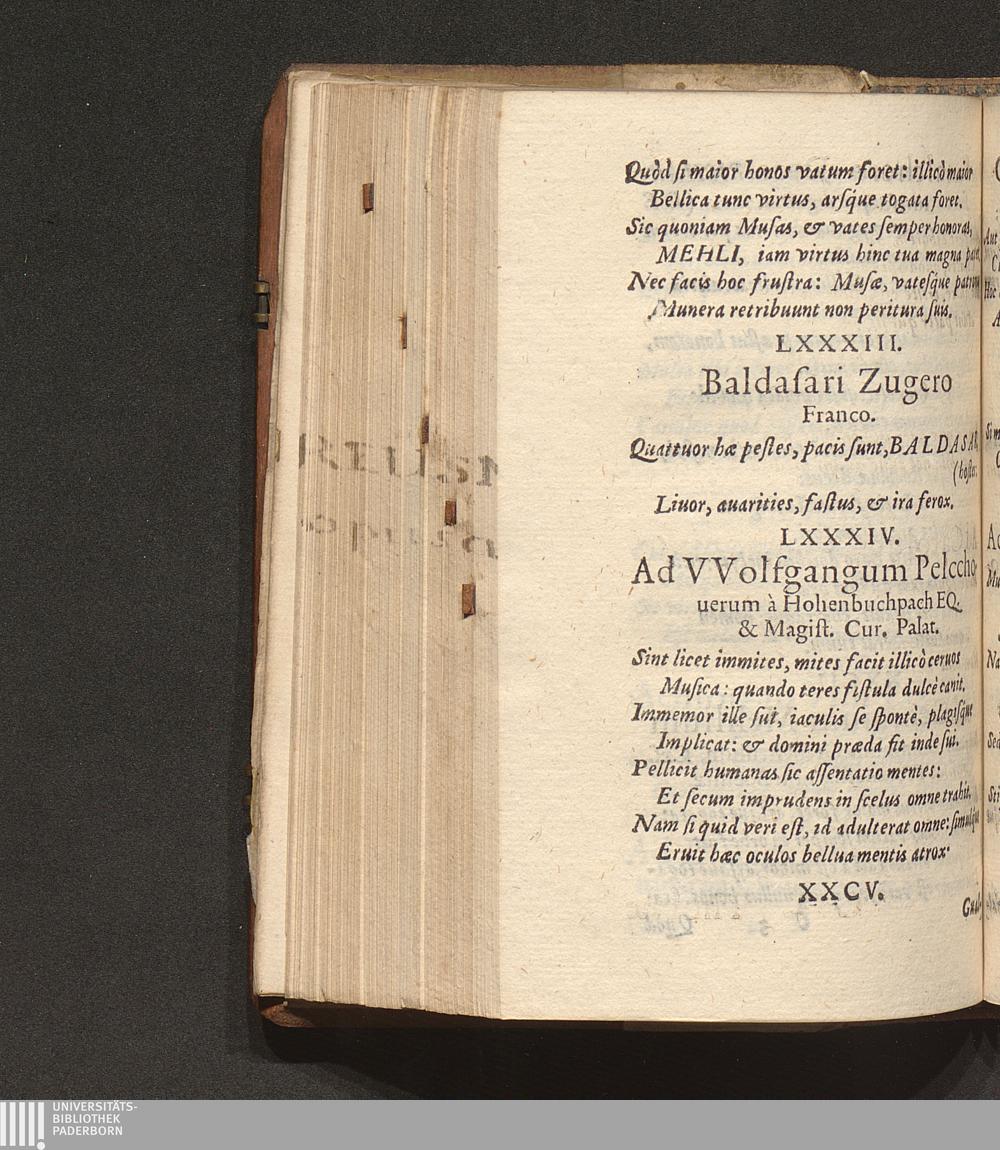 Quòd ſi maior honos vatum foret: illicò maior
Bellica tunc virtus, arſq́ue togata foret.
Sic quoniam Muſas, & vates ſemper honoras,
MEHLI, iam virtus hinc tua magna patet
Nec facis hoc fruſtra: Muſæ, vateſq́ue patrono
Munera retribuunt non peritura ſuis.
LXXXIII.
Baldaſari Zugero
Franco.
Quattuor hæ peſtes, pacis ſunt, BALDASAR,
(hoſtes
Liuor, auarities, faſtus, & ira ferox.
LXXXIV.
Ad VVolfgangum Pelccho
uerum à Hohenbuchpach EQ.
& Magiſt. Cur. Palat.
Sint licet immites, mites facit illicò ceruos
Muſica: quando teres fiſtula dulcè canit.
Immemor ille ſui, iaculis ſe ſpontè, plagiſq́ue
Implicat: & domini præda fit inde ſui.
Pellicit humanas ſic aſſentatio mentes:
Et ſecum imprudens in ſcelus omne trahit.
Nam ſi quid veri eſt, id adulterat omne: ſimulq́ue
Eruit hæc oculos bellua mentis atrox.
XXCV.
UNIVERSITÄTS-
BIBLIOTHEK
PADERBORN